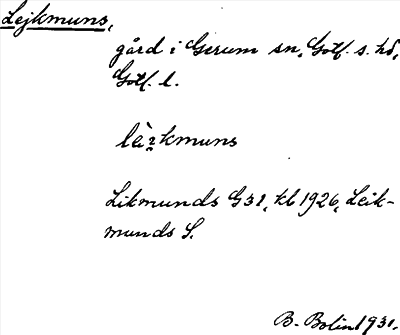 Lejkmuns,
gård i Gerum sn, Gotl. s. hd,
Gotl. l.
Likmunds G31, kb 1926, Leik-
munds S.
B. Bolin 1931.